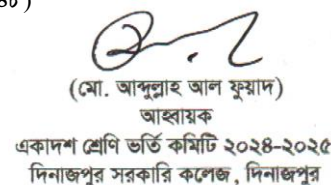 (মো. আব্দুল্লাহ আল ফুয়াদ)
আহ্বায়ক
একাদশ শ্রেণি ভর্তি কমিটি ২০২৪-২০২৫
দিনাজপুর সরকারি কলেজ, দিনাজপুর